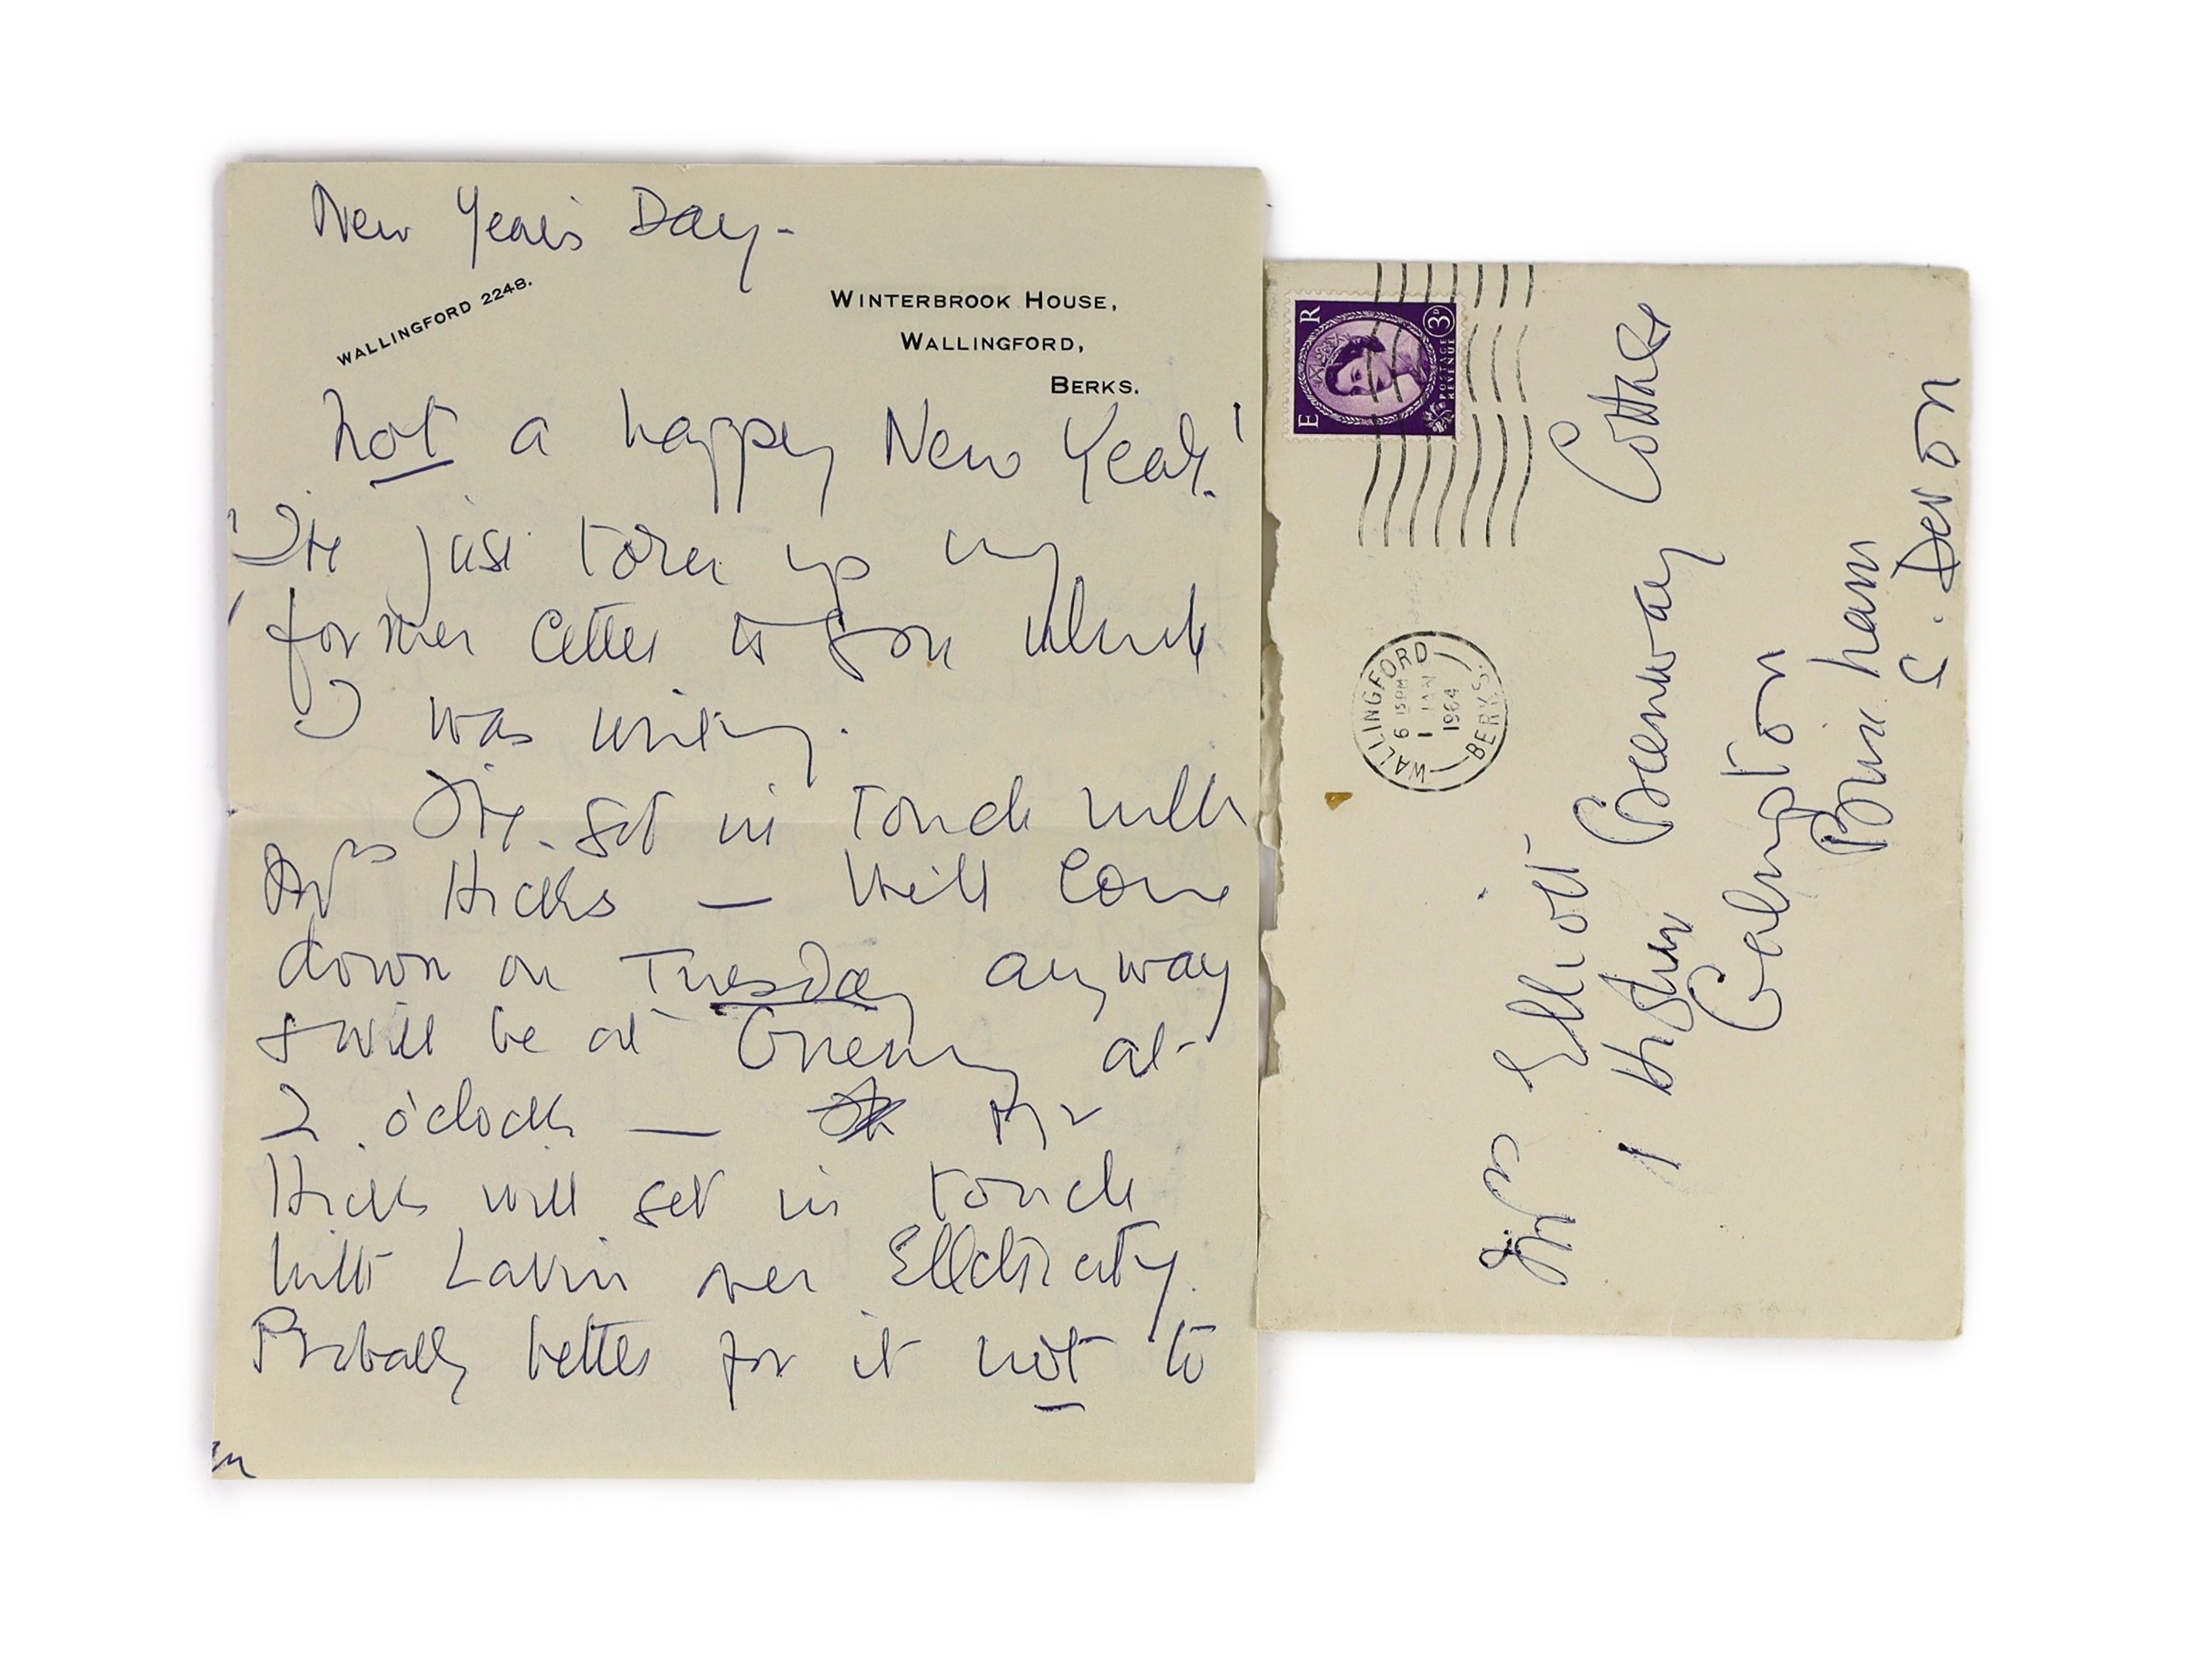 New Year's Day -
WALLINGFORD 2248.
WINTERBROOK HOUSE,
WALLINGFORD,
BERKS.
Not a happy New Year!
I've just torn up my
former letter to you which
I was writing.
I've got in touch with
Mrs Hicks — Will come
down on Tuesday anyway
& will be at Greenway at
2 o'clock — Mr
Hicks will get in touch
with Lavin over Electricity.
Probably better for it not to
E R
3D
POSTAGE
REVENUE
WALLINGFORD
6 15PM
1 JAN
1964
BERKS.
Mrs Elliott
1 Higher Greenway Cottage
Galmpton
Brixham
S. Devon